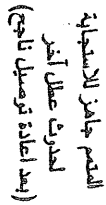 المتمم جاهز للاستجابة
لحدوث عطل آخر
(بعد اعادة توصيل ناجح)